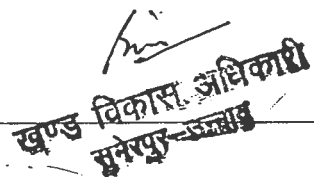 खण्ड विकास अधिकारी
सुमेरपुर-उन्नाव